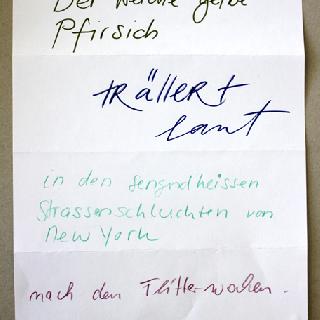 Der weiche gelbe
Pfirsich
trällert
laut
in den sengendheissen
Strassenschluchten von
New York
nach den Flitterwochen.